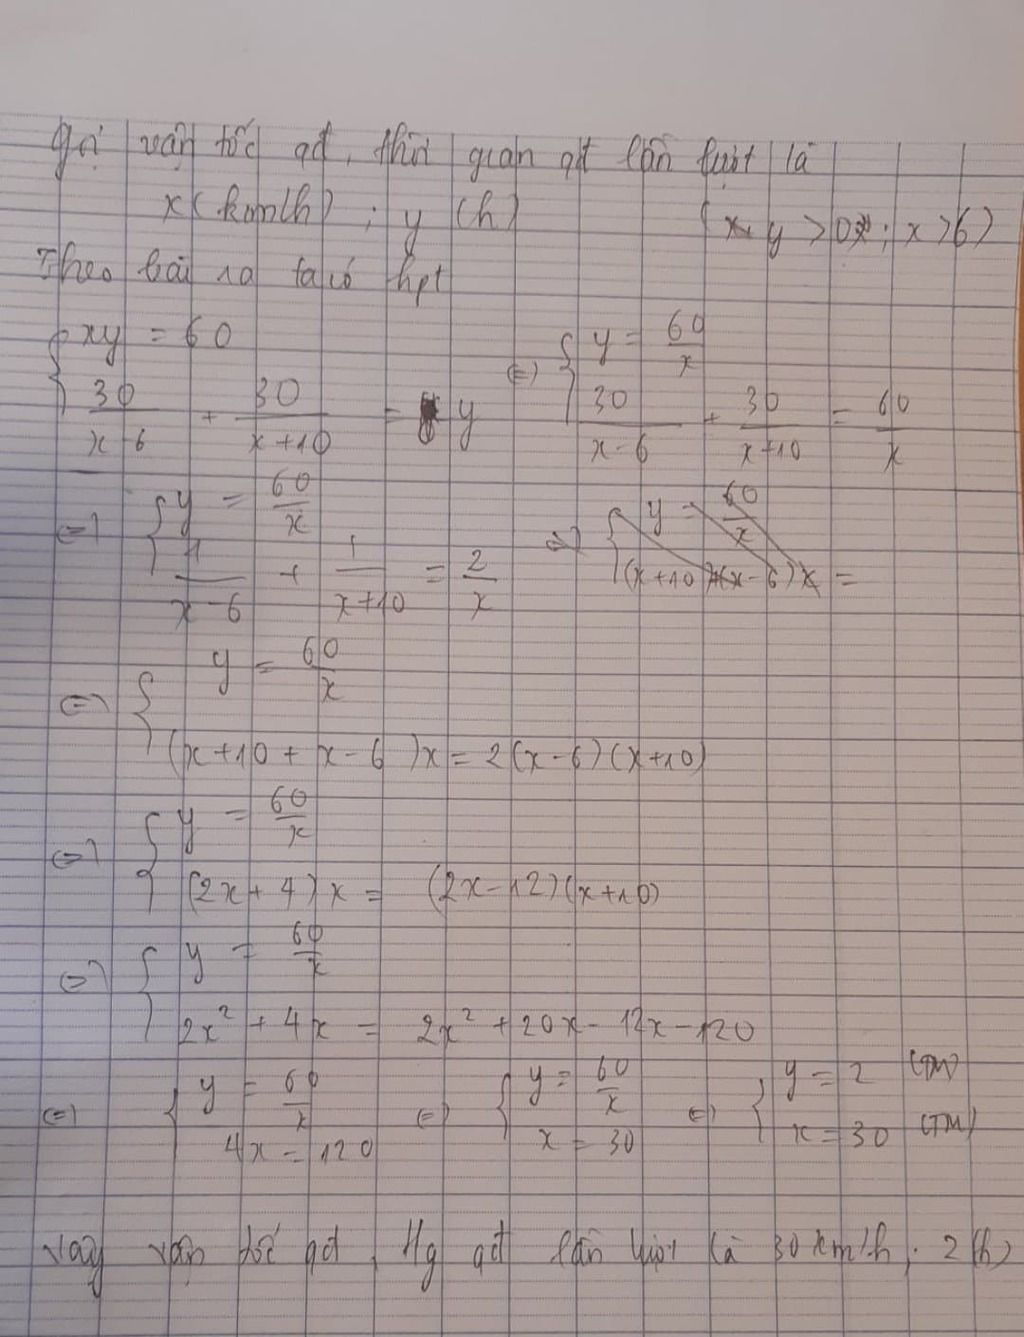 Gọi vận tốc qđ, thời gian qđ lần lượt là
x (km/h) ; y (h) (x, y > 0 ; x > 6)
Theo bài ra ta có hpt
{ xy = 60 ; 30/(x-6) + 30/(x+10) = y (=) { y = 60/x ; 30/(x-6) + 30/(x+10) = 60/x
(=) { y = 60/x ; 1/(x-6) + 1/(x+10) = 2/x (=) { y = 60/x ; (x+10)+(x-6)x =
(=) { y = 60/x
(x+10 + x-6)x = 2(x-6)(x+10)
(=) { y = 60/x
(2x+4)x = (2x-12)(x+10)
(=) { y = 60/x
2x² + 4x = 2x² + 20x - 12x - 120
(=) { y = 60/x ; 4x = 120 (=) { y = 60/x ; x = 30 (=) { y = 2 (TM) ; x = 30 (TM)
Vậy vận tốc qđ, tg qđ lần lượt là 30 km/h, 2(h)